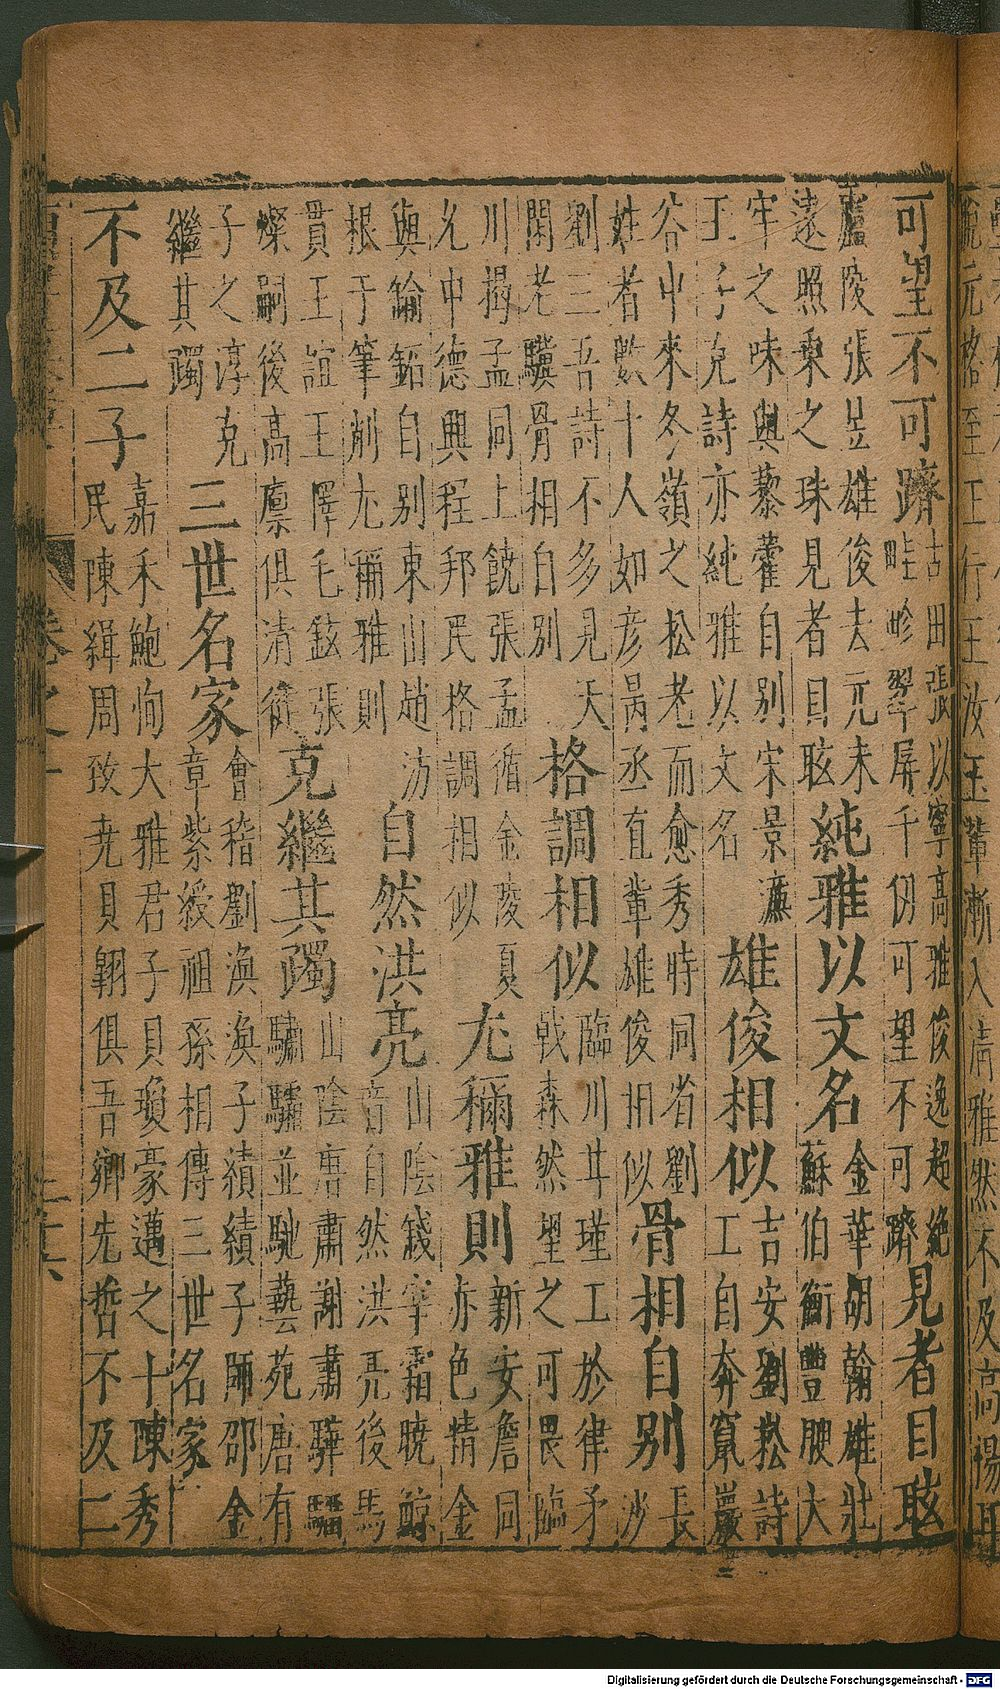 可望不可躋
古田張以寧高雅俊逸超絶
畦畛翠屏千仞可望不可躋
見者目眩
廬陵張昱雄俊去元未
遠照乗之珠見者目眩
純雅以文名
金華胡翰雄壯
蘇伯衡豐腴大
牢之味與藜藿自别宋景濂
王子充詩亦純雅以文名
雄俊相似
吉安劉崧詩
工自奔竄巖
谷中來冬嶺之松老而愈秀時同省劉
姓者數十人如彦昺丞直輩雄俊相似
骨相自别
長
沙
劉三吾詩不多見天
閑老驥骨相自别
格調相似
臨川甘瑾工於律矛
戟森然望之可畏臨
川揭孟同上饒張孟循金陵夏
允中德興程邦民格調相似
尤稱雅則
新安詹同
亦色情金
與鍮鉐自别東山趙汸
根于筆削尤稱雅則
自然洪亮
山陰錢宰霜曉鯨
音自然洪亮後馬
貫王誼王懌毛鉉張
燦嗣後高廪俱清
克繼其躅
山陰唐肅謝肅驊騮
驌驦並馳藝苑唐有
子之淳克
繼其躅
三世名家
會稽劉渙渙子績績子師邵金
章紫綬祖孫相傳三世名家
不及二子
嘉禾鮑恂大雅君子貝瓊豪邁之十陳秀
民陳緝周致尭貝翶俱吾鄉先哲不及二
卷之
Digitalisierung gefördert durch die Deutsche Forschungsgemeinschaft - DFG